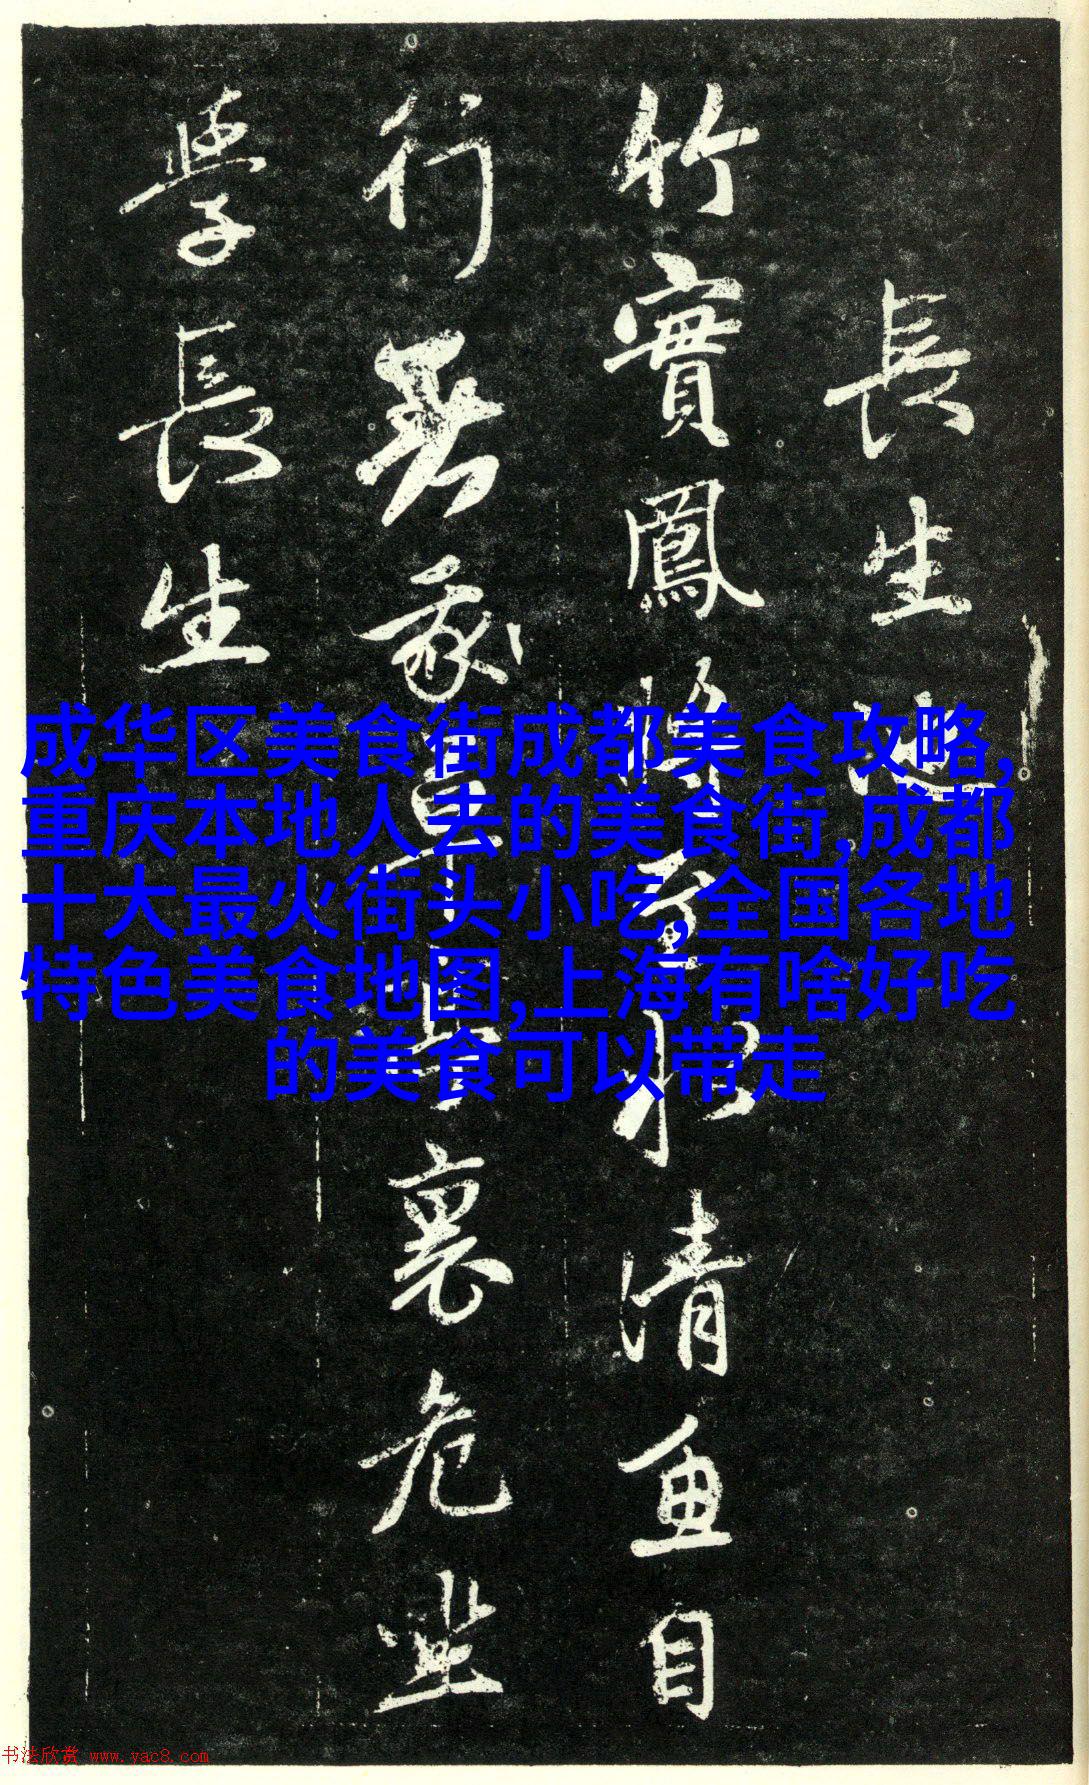 長生池
竹實鳳將至水清魚自
行裏危坐
學長生
成华区美食街成都美食攻略,
重庆本地人去的美食街,成都
十大最火街头小吃,全国各地
特色美食地图,上海有啥好吃
的美食可以带走
书法欣赏 www.yac8.com